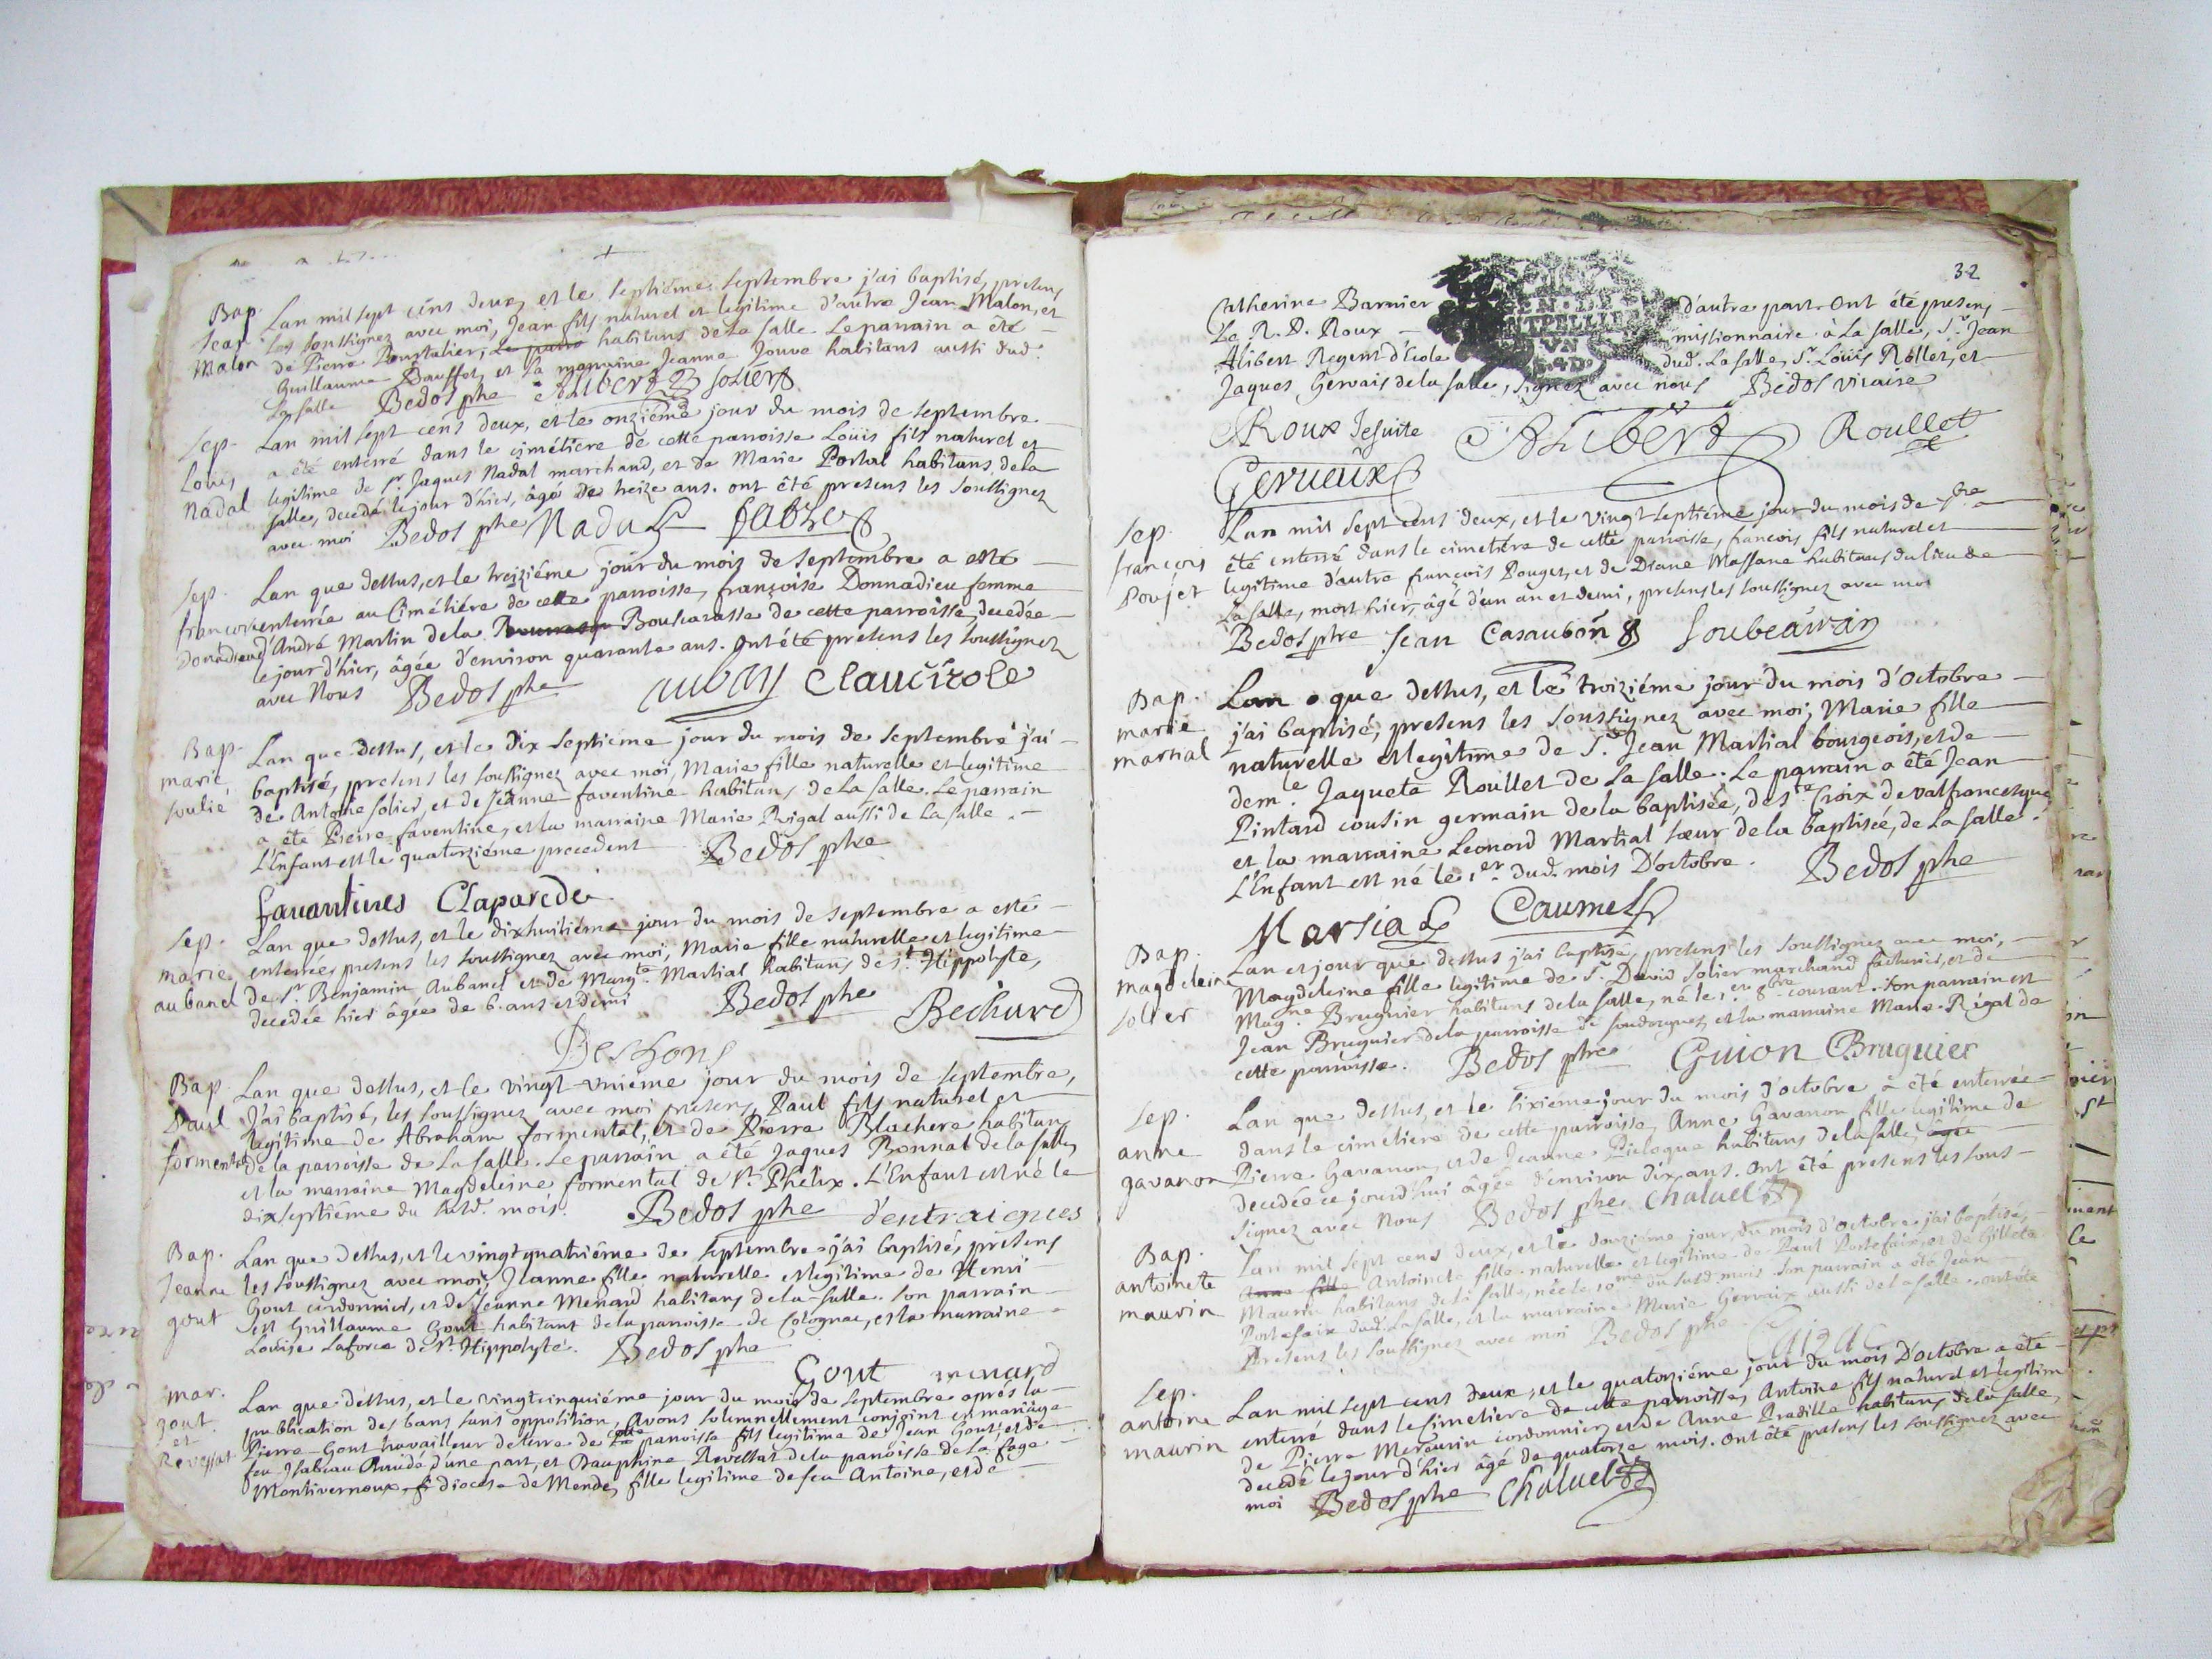 Bap. Lan mil sept cens deux, et le septiéme septembre j'ai baptisé, presens
Jean les soussignez avec moi, Jean fils naturel et legitime d'autre Jean Malon, et
Malon de Pierre Pourtalier, le parra habitans de La Salle. Le parrain a été
Guillaume Dauffes, et la marraine Jeanne Jouve habitans aussi dud.
La Salle Bedos phe Alibert Soliers
Sep. Lan mil sept cens deux, et le onziéme jour du mois de septembre
Louis a été enterré dans le cimétiere de cette parroisse Loüis fils naturel et
nadal legitime de Sr. Jaques Nadal marchand, et de Marie Portal habitans de la
salle, decedé le jour d'hier, âgé de treize ans. ont été presens les soussignez
avec moi Bedos phe Nadal fabre
Sep. Lan que dessus, et le treiziéme jour du mois de septembre a esté
francoise enterrée au Cimétiére de cette parroisse, françoise Donnadieu femme
Donadieu d'André Martin de la Bouscarasse de cette parroisse, decedée
le jour d'hier, âgée d'environ quarante ans. ont été presens les soussignez
avec Nous Bedos phe Clauzirole
Bap. Lan que dessus, et le dix septiéme jour du mois de septembre j'ai
marie baptisé, presens les soussignez avec moi, Marie fille naturelle et legitime
soulié de Antoine solier, et de Jeanne faventine habitans de La Salle. Le parrain
a été Pierre faventine, et la marraine Marie Rigal aussi de La Salle.
L'Enfant est le quatorziéme precedent Bedos phe
favantines Claparede
Sep. Lan que dessus, et le dixhuitiéme jour du mois de septembre a esté
marie enterrée, presens les soussignez avec moi, Marie fille naturelle et legitime
aubanel de Sr. Benjamin Aubanel et de Margte. Martial habitans de St. Hippolyte,
decedée hier âgée de 6. ans et demi Bedos phe Bechard
Deshons
Bap. Lan que dessus, et le vingt-uniéme jour du mois de septembre,
Paul J'ai baptisé, les soussignez avec moi presens, Paul fils naturel et
formental legitime de Abraham formental, et de Pierre Blachere habitans
de la parroisse de La Salle. Le parrain a été Jaques Bonnal de la salle,
et la marraine Magdeleine formental de St. Phelix. L'Enfant est né le
dix septiéme du susd. mois. Bedos phe d'entraigues
Bap. Lan que dessus, et le vingt quatriéme de septembre j'ai baptisé, presens
Jeanne les soussignez avec moi, Jeanne fille naturelle et legitime de Henri
gout Gout cordonnier, et de Jeanne Menard habitans de la salle. son parrain
est Guillaume Gout habitant de la parroisse de Colognac, et la marraine
Loüise Laforce de St. Hippolyte. Bedos phe
Gout menard
mar. Lan que dessus, et le vingtcinquiéme jour du mois de septembre aprés la
gout publication des bans sans opposition, Avons solemnellement conjoint en mariage
et Pierre Gout travailleur de terre de cette parroisse fils legitime de Jean Gout, et de
Revessat feu Isabeau d'une part, et Dauphine Revessat de la parroisse de La fage
Montivernoux, diocese de Mende, fille legitime de feu Antoine, et de
32
Catherine Barnier d'autre part. Ont été presens
Le R. P. Roux missionnaire a La Salle, Sr. Jean
Alibert Regent d'Ecole dud. La Salle, Sr. Loüis Rollet, et
Jaques Gervais de la salle, signez avec nous Bedos vicaire
Roux Jesuite Alibert Roullet
Gervieux
Sep. Lan mil sept cens deux, et le vingt septiéme jour du mois de 7bre a
francois été enterré dans le cimetiére de cette parroisse, francois fils naturel et
Poujet legitime d'autre françois Pouget, et de Diane Massane habitans du lieu de
La Salle, mort hier, âgé d'un an et demi, presens les soussignez avec moi
Bedos phre Jean Casaubon Soubeairan
Bap. Lan que dessus, et le troiziéme jour du mois d'octobre
marie j'ai baptisé, presens les soussignez avec moi, Marie fille
martial naturelle et legitime de Sr. Jean Martial bourgeois, et de
demle. Jaquete Roullet de La Salle. Le parrain a été Jean
Pintard cousin germain de la baptisée, de Ste. Croix de valfrancesque
et la marraine Leonord Martial sœur de la baptisée, de La Salle.
L'Enfant est né le 1er. dud. mois D'octobre. Bedos phe
Marsial Caumel
Bap. Lan et jour que dessus j'ai baptisé, presens les soussignez avec moi,
magdeleine Magdeleine fille legitime de Sr. David solier marchand facturier, et de
solier Magne. Bruguier habitans de la salle, né le 1er 8bre courant. son parrain est
Jean Bruguier de la parroisse de soudorgues, et la marraine Marie Rigal de
cette parroisse. Bedos phre Guion Bruguier
Sep. Lan que dessus, et le sixiéme jour du mois d'octobre a été enterrée
anne dans le cimetiere de cette parroisse, Anne Gavanon fille legitime de
gavanon Pierre Gavanon, et de Jeanne habitans de la salle, âgée
decedée ce jourd'hui âgée d'environ dix ans. Ont été presens les sous-
signez avec Nous Bedos phe Chaluel
Bap. Lan mil sept cens deux, et le douziéme jour du mois d'octobre j'ai baptisé,
antoinete Anne fille Antoinete fille naturelle et legitime de Paul Portefaix, et de Gillete
maurin Maurin habitans de la salle, née le 10me du susd. mois. Son parrain a été Jean
Portefaix dud. La Salle, et la marraine Marie Gervaix aussi de La Salle. ont été
presens les soussignez avec moi Bedos phe Caizac
Sep. Lan mil sept cens deux, et le quatorziéme jour du mois D'octobre a été
antoine enterré dans le cimetiere de cette parroisse, Antoine fils naturel et legitim
maurin de Pierre Mercurin cordonnier, et de Anne Pradille habitans de la salle,
decedé le jour d'hier âgé de quatorze mois. Ont été presens les soussignez avec
moi Bedos phe Chaluel